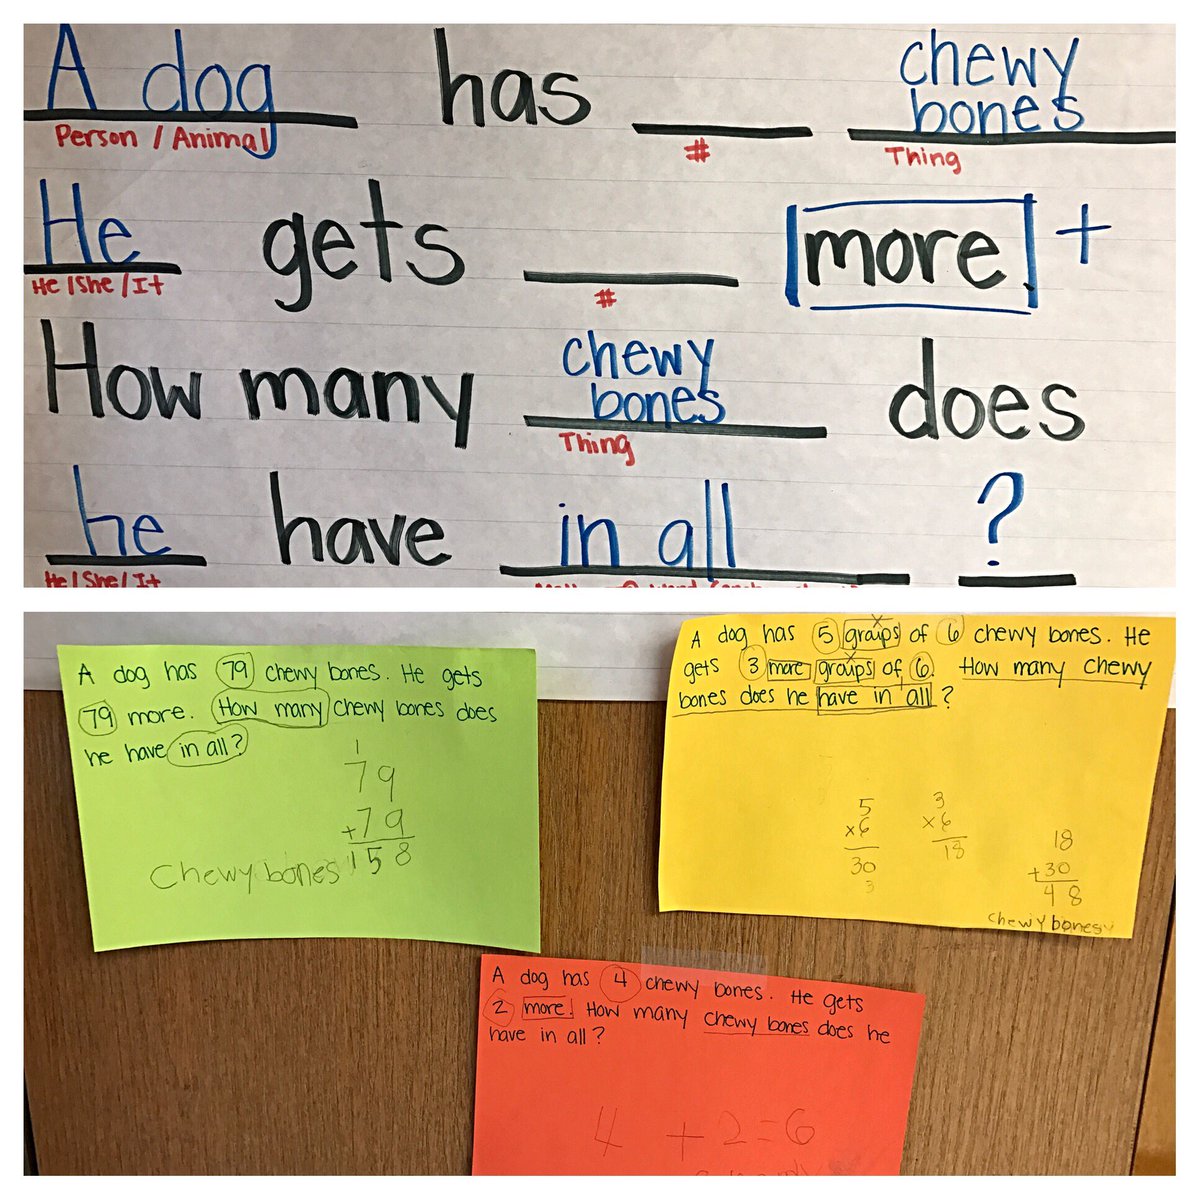 A dog has ___ chewy bones
Person / Animal # Thing
He gets ___ more. +
He/She/It #
How many chewy bones does
Thing
he have in all ?
He/She/It
A dog has 79 chewy bones. He gets
79 more. How many chewy bones does
he have in all?
1
79
+79
158
chewy bones
A dog has 5 groups of 6 chewy bones. He
x
gets 3 more groups of 6. How many chewy
x
bones does he have in all?
5
x6
30
3
3
x6
18
18
+30
48
chewy bones
A dog has 4 chewy bones. He gets
2 more. How many chewy bones does he
have in all?
4 + 2=6